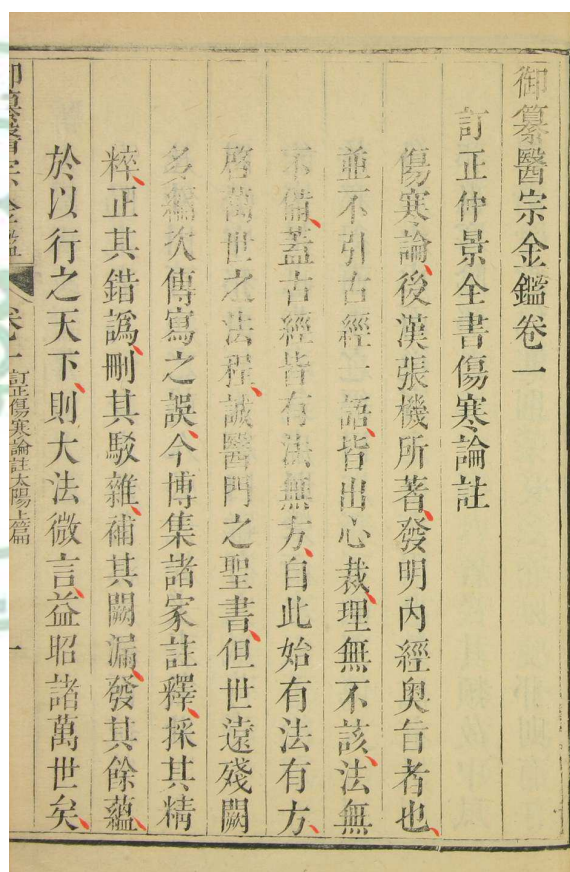 御纂醫宗金鑑卷一
訂正仲景全書傷寒論註
傷寒論、後漢張機所著、發明內經奧旨者也、
並不引古經一語、皆出心裁、理無不該、法無
不備、蓋古經皆有法無方、自此始有法有方、
啓萬世之法程、誠醫門之聖書、但世遠殘闕
多編次傳寫之誤、今博集諸家註釋、採其精
粹、正其錯譌、刪其駁雜、補其闕漏、發其餘蘊、
於以行之天下、則大法微言、益昭諸萬世矣、
御纂醫宗金鑑 卷一 訂正傷寒論註太陽上篇 一